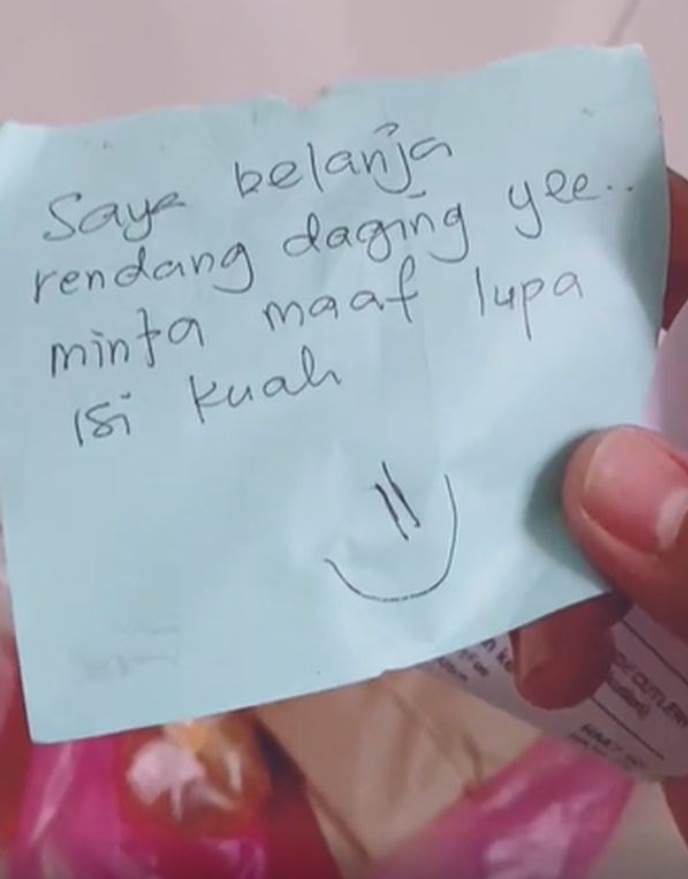 Saya belanja
rendang daging yee..
minta maaf lupa
isi kuah